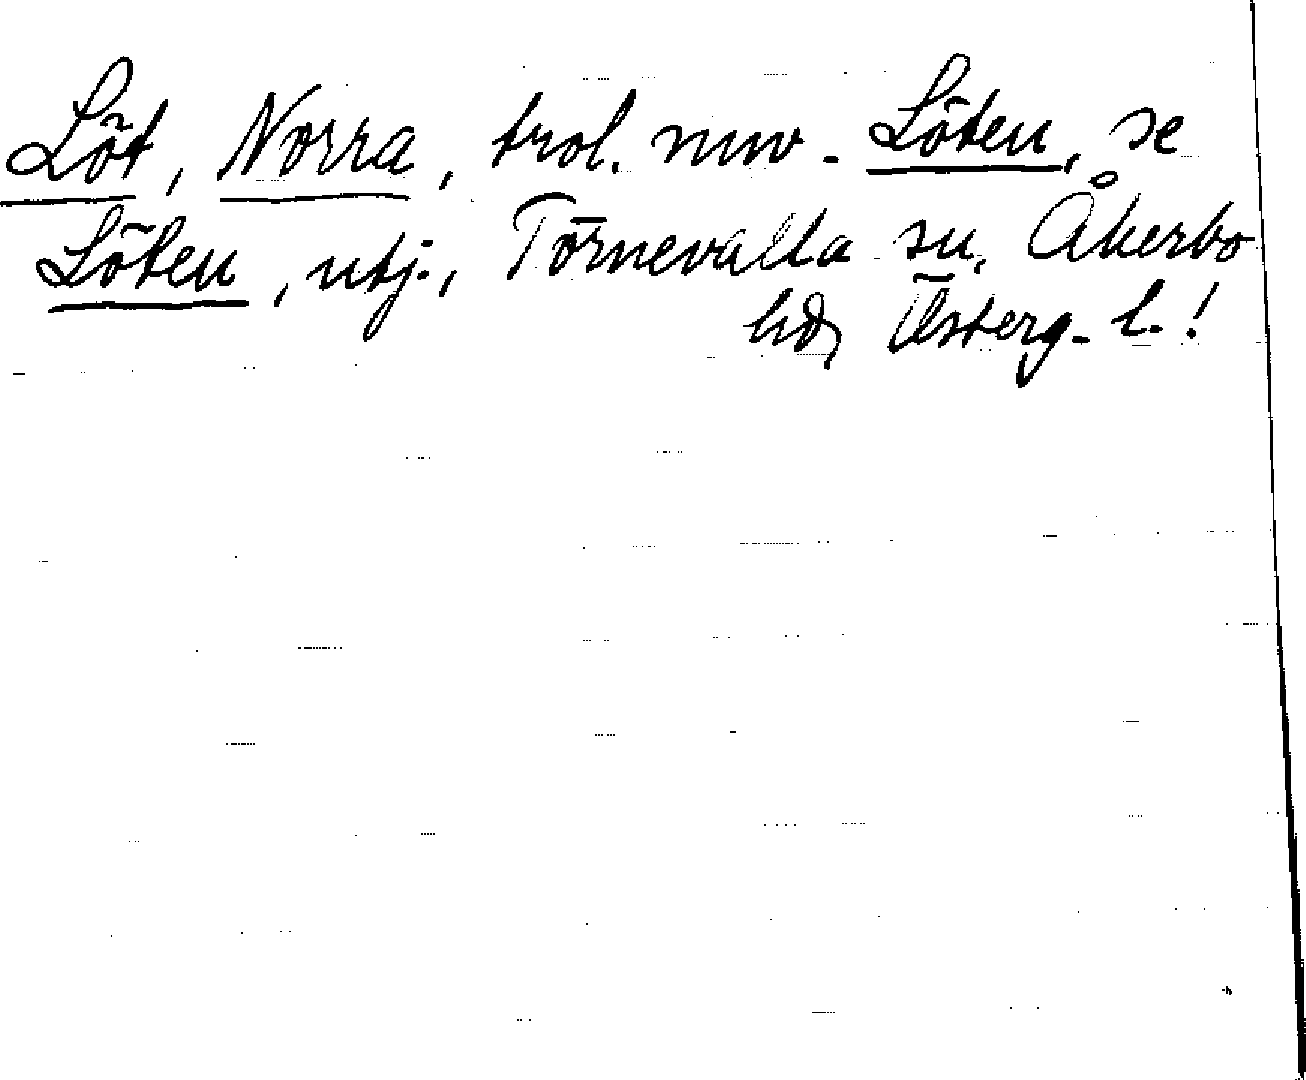 Löt, Norra, trol. nuv. Löten, se
Löten, utj., Törnevalla sn, Åkerbo
hd, Österg. l.!